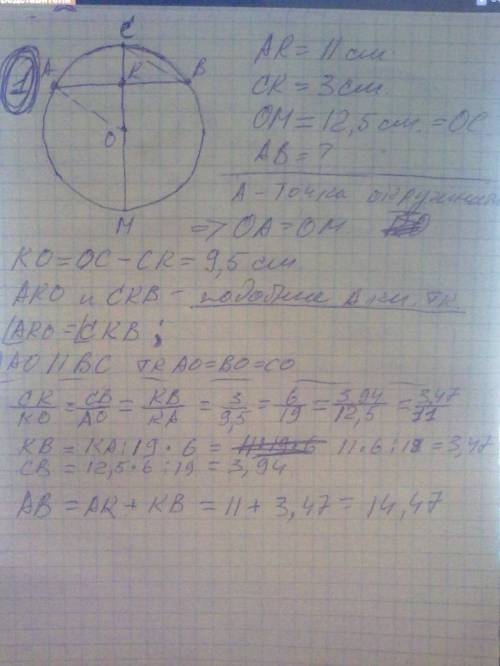 1
C
A
K
B
O
M
AK = 11 см
CK = 3 см
OM = 12,5 см = OC
AB = ?
A - точка окружности
=> OA = OM
KO = OC - CK = 9,5 см
AKO и CKB - подобные
AKO = CKB ;
AO || BC тк AO = BO = CO
CK/KO = CB/AO = KB/KA = 3/9,5 = 6/19 = 3,94/12,5 = 3,47/11
KB = KA : 19 · 6 = 11 · 6 : 19 = 3,47
CB = 12,5 · 6 : 19 = 3,94
AB = AK + KB = 11 + 3,47 = 14,47